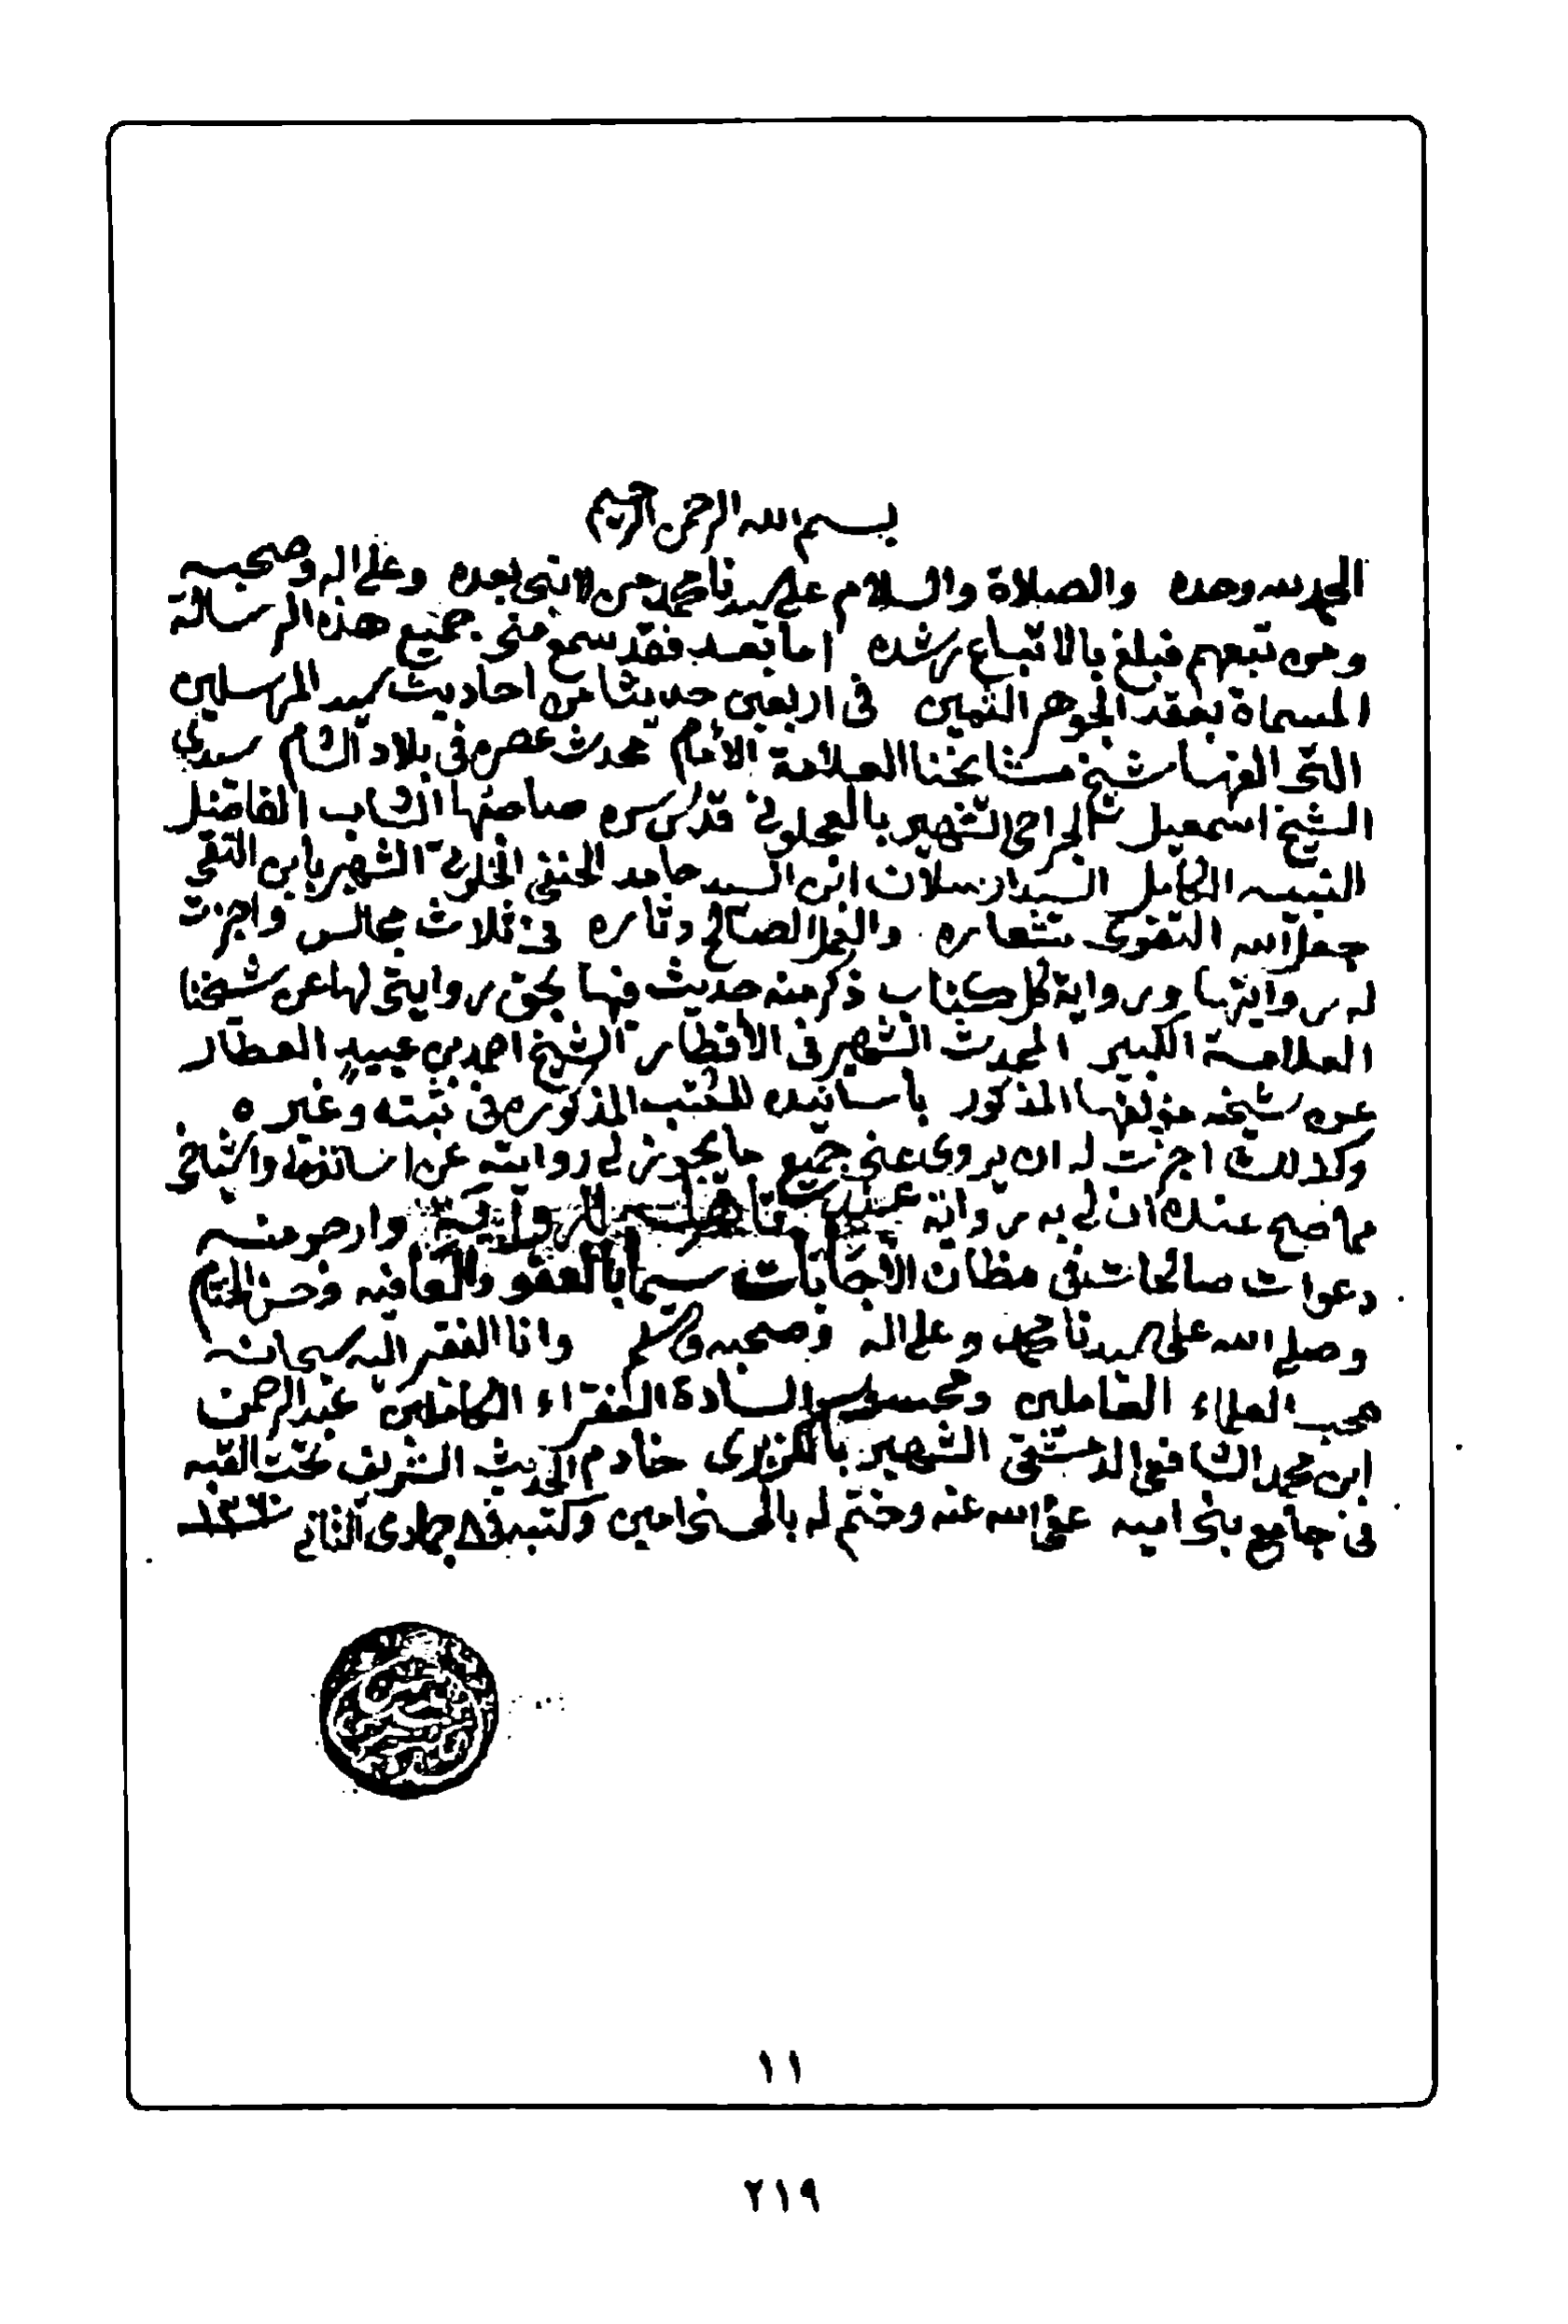 بسم الله الرحمن الرحيم
الحمد لله وحده والصلاة والسلام على سيدنا محمد من لا نبي بعده وعلى اله وصحبه
ومن تبعهم فبلغ بالاتباع رشده اما بعد فقد سمع مني جميع هذه الرسالة
المسماة بعقد الجوهر الثمين في اربعين حديثا من احاديث سيد المرسلين
التي الفها شيخ مشايخنا العلامة الامام محدث عصره في بلاد الشام سيدي
الشيخ اسمعيل الجراحي الشهير بالعجلوني قدس سره صاحبها الشاب الفاضل
النبيه الكامل السيد ارسلان ابن السيد حامد الحنفي الخلوتي الشهير بابن التقي
جعل الله التقوى شعاره والعمل الصالح دثاره في ثلاث مجالس واجزت
له روايتها ورواية كل كتاب ذكر منه حديث فيها بحق روايتي لها عن شيخنا
العلامة الكبير المحدث الشهير في الاقطار الشيخ احمد بن عبيد العطار
عن شيخه مؤلفها المذكور باسانيده للكتب المذكوره في ثبته وغيره
وكذلك اجزت له ان يروي عني جميع ما يجوز لي روايته عن اساتذتي واشياخي
مما صح عندك ان لي به رواية للرواية وارجو منه
دعوات صالحات في مظان الاجابات سيما بالعفو والعافيه وحسن الختام
وصلى الله على سيدنا محمد وعلى اله وصحبه وسلم وانا الفقير اليه سبحانه
محب العلماء العاملين ومحسوب السادة الفقراء الكاملين عبد الرحمن
ابن محمد الشافعي الدمشقي الشهير بالكزبري خادم الحديث الشريف تحت القبه
في جامع بني اميه عفى الله عنه وختم له بالحسنى امين وكتبه في ٨ جمادى الثاني
١١
٢١٩